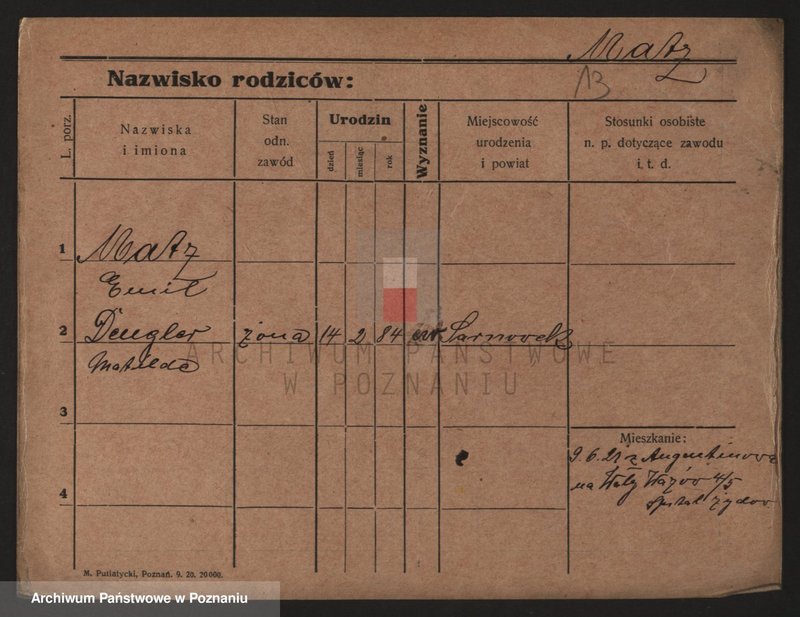 Matz
13
Nazwisko rodziców:
L. porz.
Nazwiska
i imiona
Stan
odn.
zawód
Urodzin
dzień
miesiąc
rok
Wyznanie
Miejscowość
urodzenia
i powiat
Stosunki osobiste
n. p. dotyczące zawodu
i. t. d.
1 Matz
Emil
2 Dengler żona 14 2 84 ew Sarnowek
Matilde
ARCHIWUM PAŃSTWOWE
W POZNANIU
3
Mieszkanie:
9.6.21 z Augustinowa
na Wały Wazów 4/5
4
szpital żydow
M. Putiatycki, Poznań. 9. 20. 20000.
Archiwum Państwowe w Poznaniu